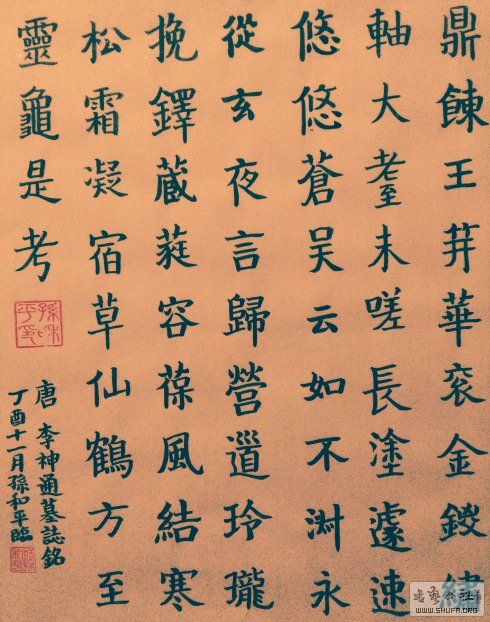 鼎餗王華袞金
軸大耋未嗟長塗遽速
悠悠蒼昊云如不淑永
從玄夜言歸營道玲瓏
挽鐸葳蕤容葆風結寒
松霜凝宿草仙鶴方至
靈龜是考
孫和平印
唐 李神通墓誌銘
丁酉十一月孫和平臨
书艺公社
WWW.SHUFA.ORG